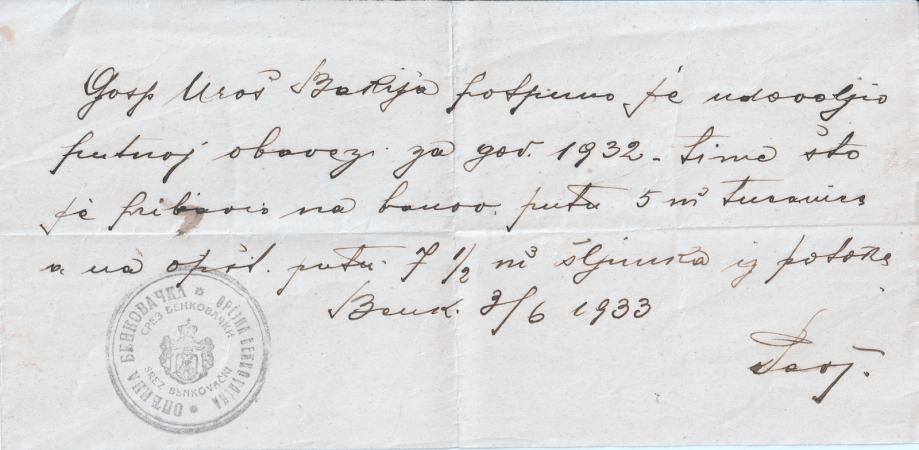 Gosp Uroš Bakija potpuno je udovoljio
putnoj obavezi za god. 1932 - time što
je pribavio na banov. putu 5 m³ tucanica
a na opšt. putu 7 1/2 m³ šljunka iz potoka
Benk. 3/6 1933
ОПЋИНА БЕНКОВАЧКА * OPĆINA BENKOVAČKA *
СРЕЗ БЕНКОВАЧКИ
SREZ BENKOVAČKI